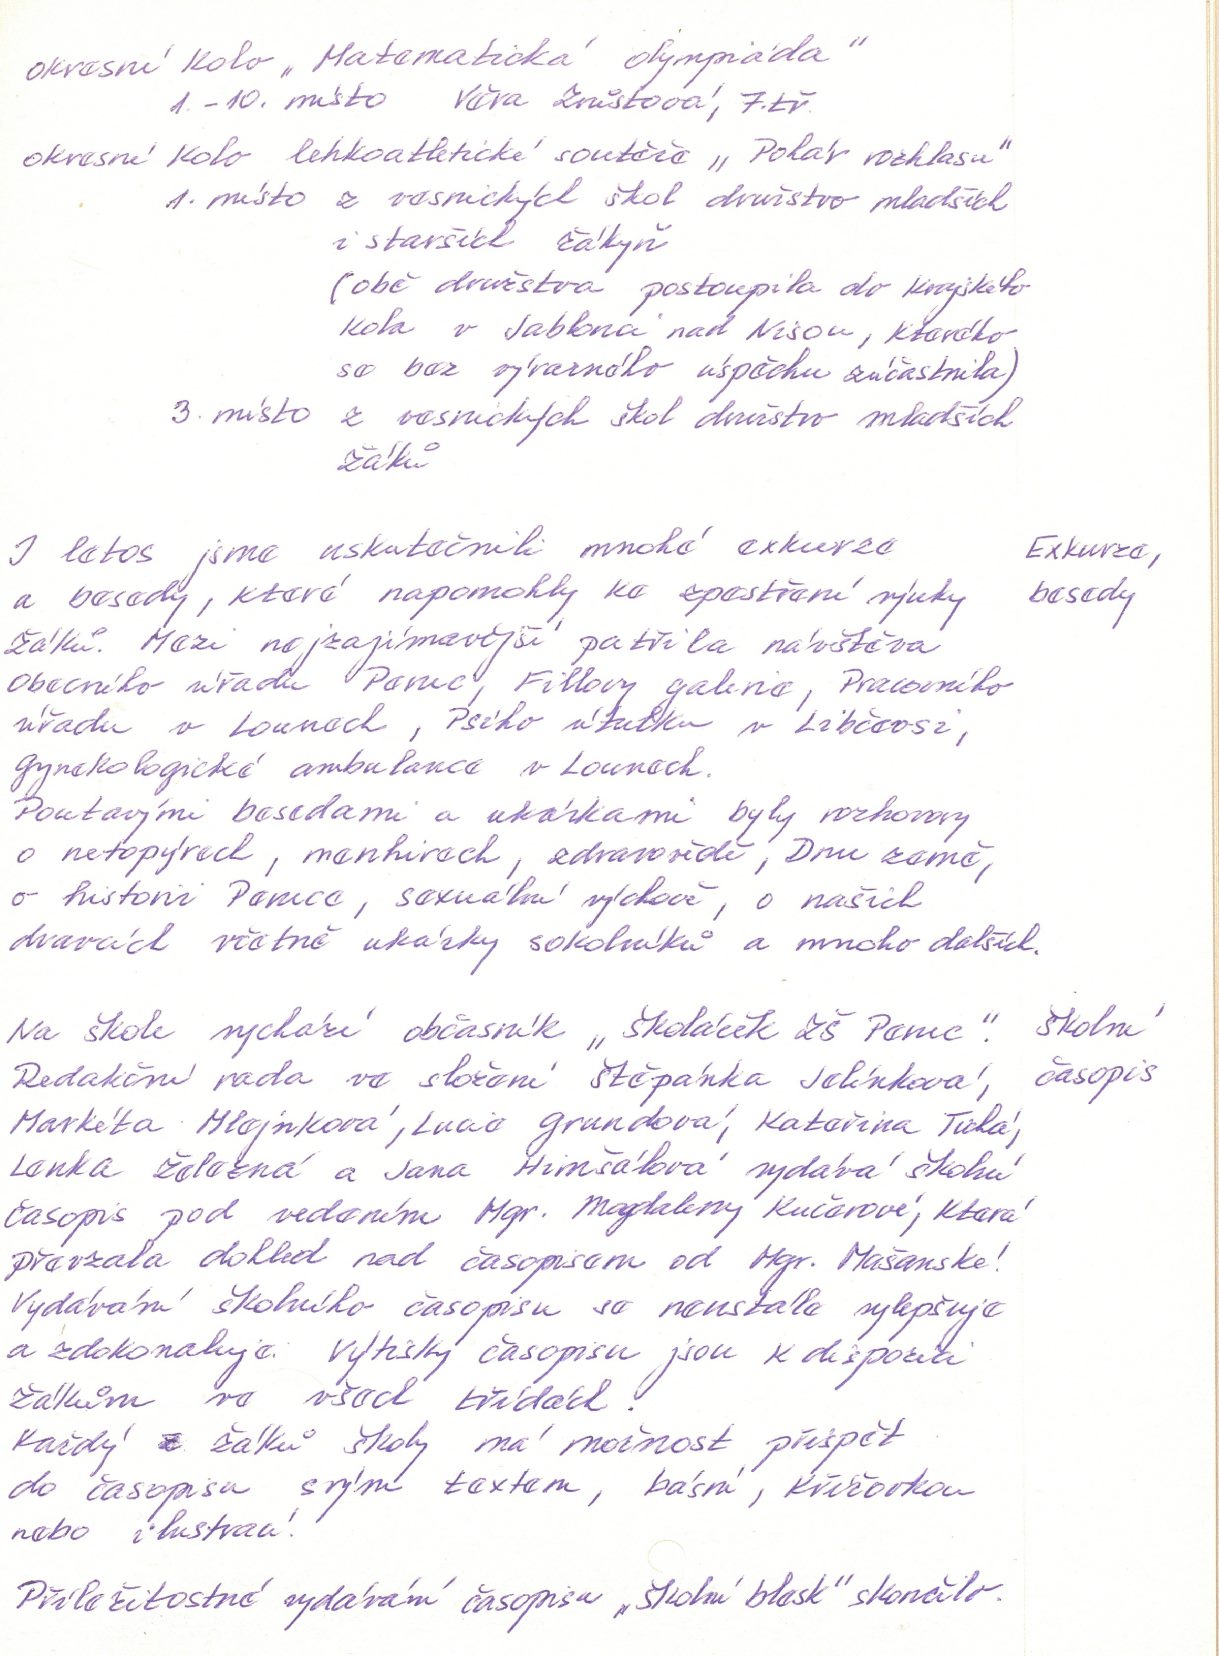 okresní kolo „Matematická olympiáda"
1.-10. místo Věra Zrůstová, 7.tř.
okresní kolo lehkoatletické soutěže „Pohár rozhlasu"
1. místo z vesnických škol družstvo mladších
i starších žákyň
(obě družstva postoupila do krajského
kola v Jablonci nad Nisou, kterého
se bez výrazného úspěchu zúčastnila)
3. místo z vesnických škol družstvo mladších
žáků
I letos jsme uskutečnili mnohé exkurze
a besedy, které napomohly ke zpestření výuky
žáků. Mezi nejzajímavější patřila návštěva
Obecního úřadu Peruc, Fillovy galerie, Pracovního
úřadu v Lounech, Psího útulku v Libčevsi,
gynekologické ambulance v Lounech.
Poutavými besedami a ukázkami byly rozhovory
o netopýrech, menhirech, zdravovědě, Dnu země,
o historii Peruce, sexuální výchově, o našich
dravcích včetně ukázky sokolníků a mnoho dalších.
Exkurze,
besedy
Na škole vychází občasník „Školáček ZŠ Peruc".
Redakční rada ve složení Štěpánka Jelínková,
Markéta Mlejnková, Lucie Grundová, Kateřina Tichá,
Lenka Železná a Jana Himšálová vydává školní
časopis pod vedením Mgr. Magdaleny Kučerové, která
převzala dohled nad časopisem od Mgr. Mašanské.
Vydávání školního časopisu se neustále vylepšuje
a zdokonaluje. Výtisky časopisu jsou k dispozici
žákům ve všech třídách.
Každý z žáků školy má možnost přispět
do časopisu svým textem, básní, křížovkou
nebo ilustrací.
Školní
časopis
Příležitostné vydávání časopisu „Školní blesk" skončilo.